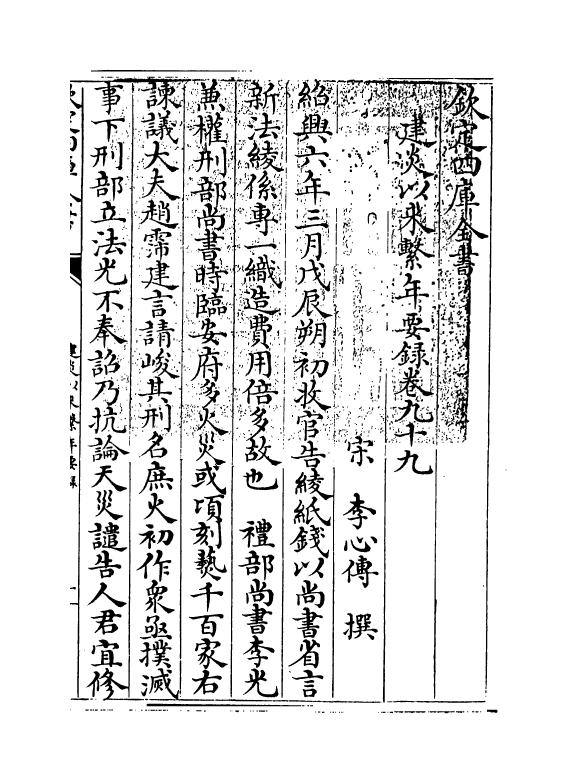 欽定四庫全書
建炎以來繫年要録卷九十九
宋 李心傳 撰
紹興六年三月戊辰朔初收官告綾紙錢以尚書省言
新法綾係專一織造費用倍多故也 禮部尚書李光
兼權刑部尚書時臨安府多火災或頃刻爇千百家右
諫議大夫趙霈建言請峻其刑名庶火初作衆亟撲滅
事下刑部立法光不奉詔乃抗論天災譴告人君宜修
欽定四庫全書
建炎以來繫年要録
一